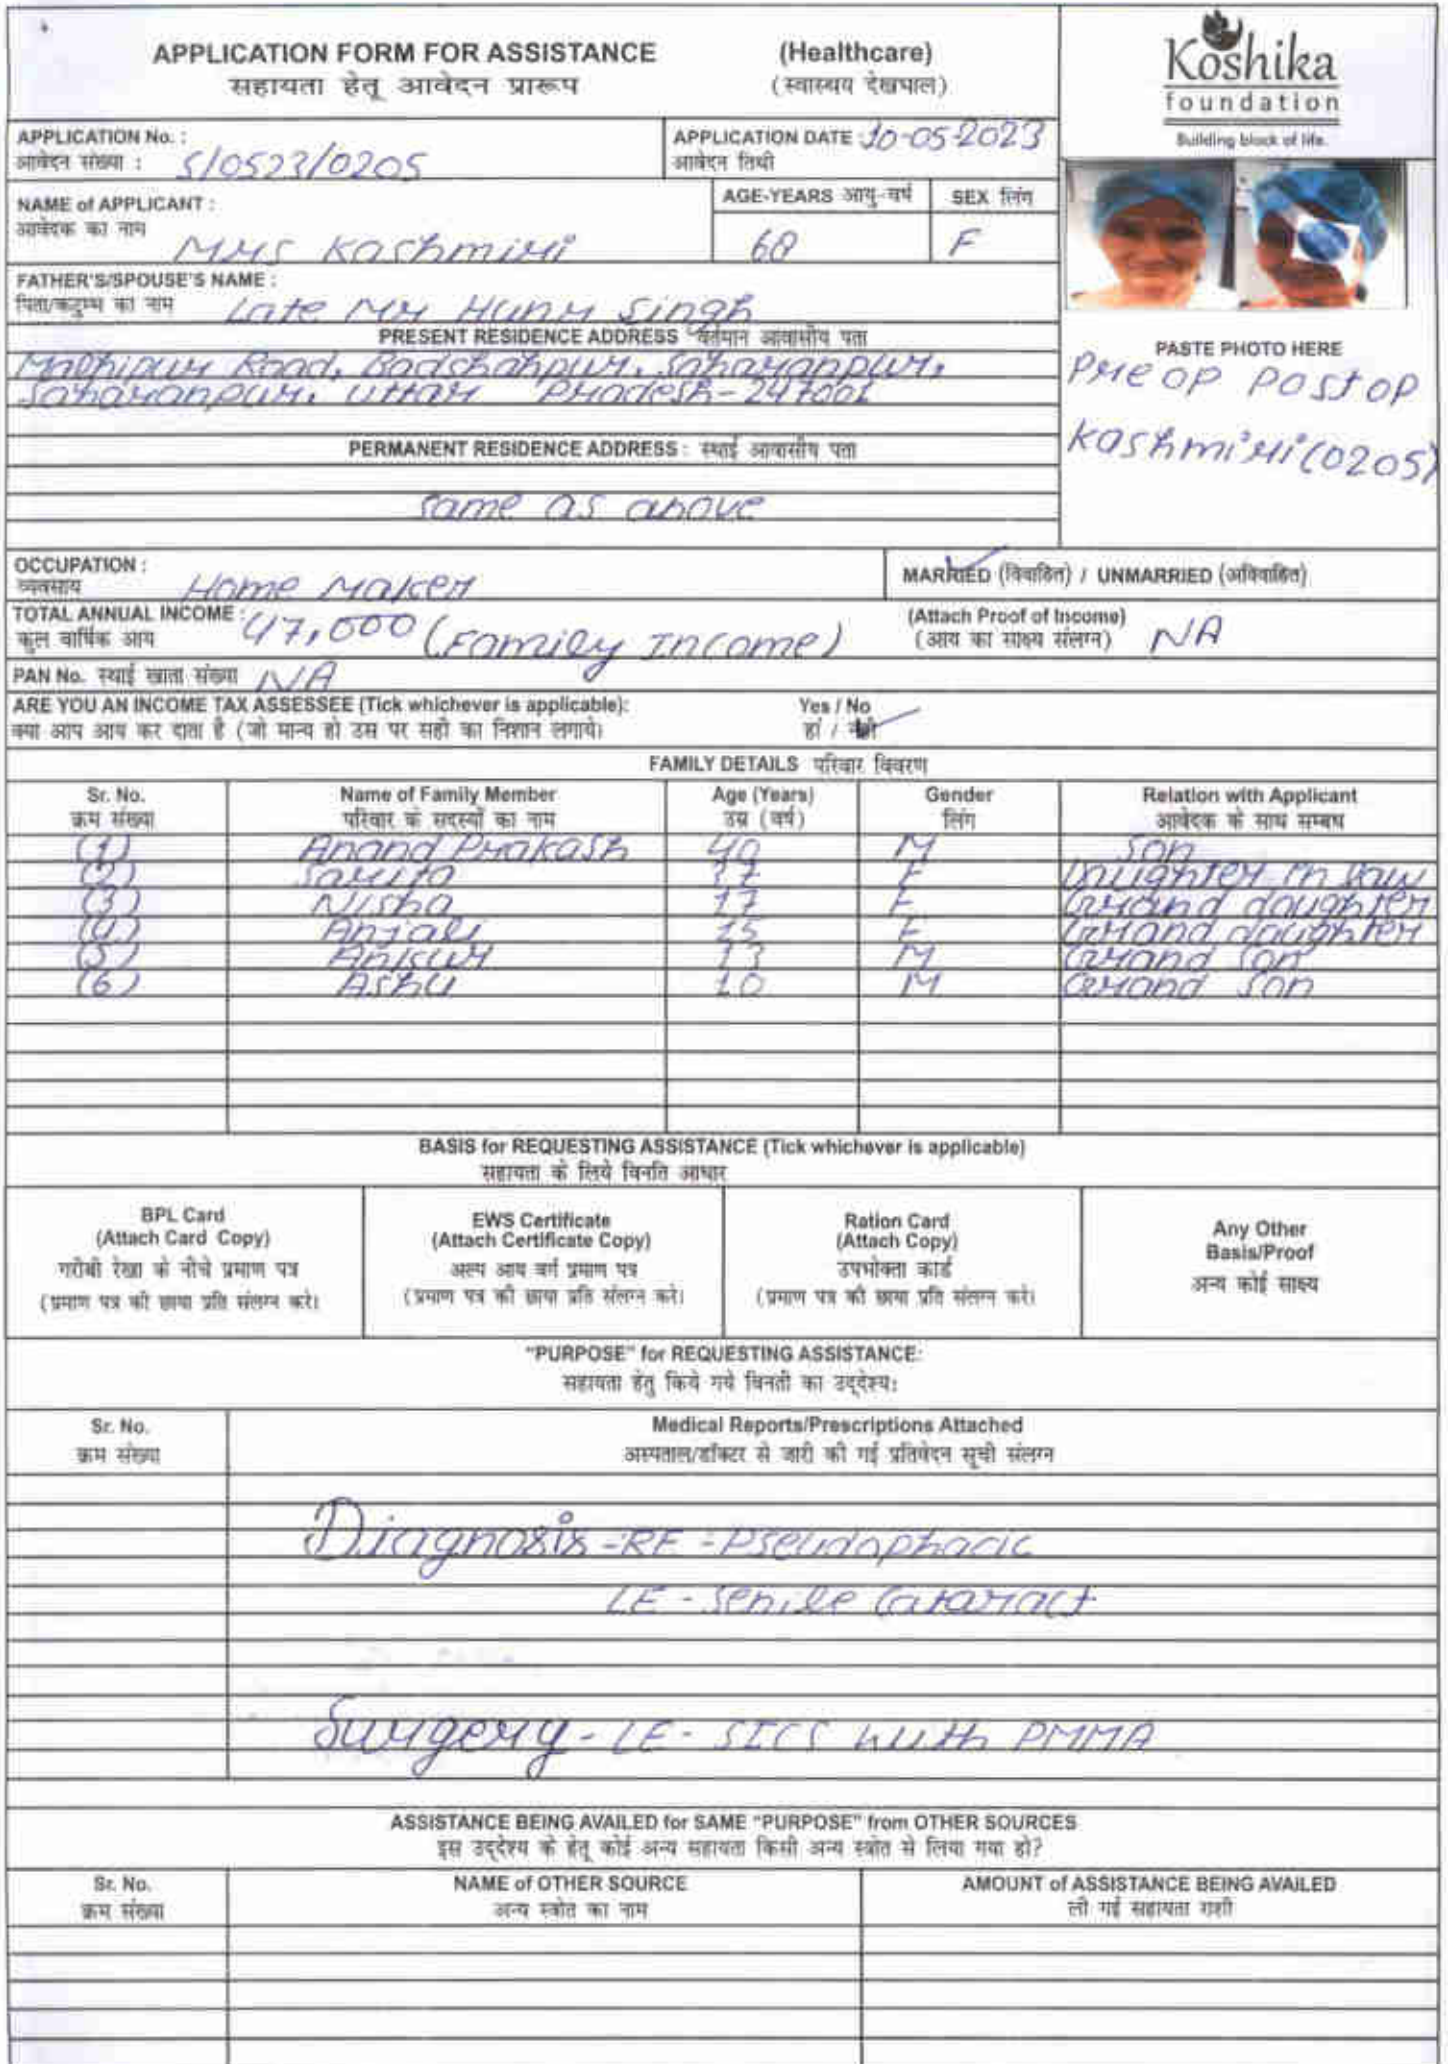 APPLICATION FORM FOR ASSISTANCE (Healthcare)
सहायता हेतू आवेदन प्रारूप (स्वास्थय देखभाल)
Koshika
foundation
Building block of life.
APPLICATION No. :
आवेदन संख्या : S/0523/0205
APPLICATION DATE : 10-05-2023
आवेदन तिथी
NAME of APPLICANT :
आवेदक का नाम Mrs Kashmiri
AGE-YEARS आयु-वर्ष 68
SEX लिंग F
FATHER'S/SPOUSE'S NAME :
पिता/कटुम्भ का नाम Late Mr Hunr Singh
PRESENT RESIDENCE ADDRESS वर्तमान आवासीय पता
Malhipur Road, Badshahpur, Saharanpur,
Saharanpur, Uttar Pradesh-247001
PERMANENT RESIDENCE ADDRESS : स्थाई आवासीय पता
same as above
PASTE PHOTO HERE
Preop Postop
Kashmiri(0205)
OCCUPATION :
व्यवसाय Home Maker
MARRIED (विवाहित) / UNMARRIED (अविवाहित)
TOTAL ANNUAL INCOME :
कुल वार्षिक आय 47,000 (Family Income)
(Attach Proof of Income)
(आय का साक्ष्य संलग्न) NA
PAN No. स्थाई खाता संख्या NA
ARE YOU AN INCOME TAX ASSESSEE (Tick whichever is applicable): Yes / No
क्या आप आय कर दाता है (जो मान्य हो उस पर सही का निशान लगाये। हां / नही
FAMILY DETAILS परिवार विवरण
Sr. No. Name of Family Member Age (Years) Gender Relation with Applicant
क्रम संख्या परिवार के सदस्यों का नाम उम्र (वर्ष) लिंग आवेदक के साथ सम्बध
(1) Anand Prakash 40 M Son
(2) Sarita 37 F Daughter in law
(3) Nisha 17 F Grand daughter
(4) Anjali 15 F Grand daughter
(5) Ankur 13 M Grand Son
(6) Ashu 10 M Grand Son
BASIS for REQUESTING ASSISTANCE (Tick whichever is applicable)
सहायता के लिये विनति आधार
BPL Card
(Attach Card Copy)
गरीबी रेखा के नीचे प्रमाण पत्र
(प्रमाण पत्र की छाया प्रति संलग्न करे।
EWS Certificate
(Attach Certificate Copy)
अल्प आय वर्ग प्रमाण पत्र
(प्रमाण पत्र की छाया प्रति संलग्न करे।
Ration Card
(Attach Copy)
उपभोक्ता कार्ड
(प्रमाण पत्र की छाया प्रति संलग्न करे।
Any Other
Basis/Proof
अन्य कोई साक्ष्य
"PURPOSE" for REQUESTING ASSISTANCE:
सहायता हेतु किये गये विनती का उद्देश्य:
Sr. No. Medical Reports/Prescriptions Attached
क्रम संख्या अस्पताल/डॉक्टर से जारी की गई प्रतिवेदन सूची संलग्न
Diagnosis - RE - Pseudophacic
LE - Senile Cataract
Surgery - LE - SICS with PMMA
ASSISTANCE BEING AVAILED for SAME "PURPOSE" from OTHER SOURCES
इस उद्देश्य के हेतू कोई अन्य सहायता किसी अन्य स्त्रोत से लिया गया हो?
Sr. No. NAME of OTHER SOURCE AMOUNT of ASSISTANCE BEING AVAILED
क्रम संख्या अन्य स्त्रोत का नाम ली गई सहायता राशी